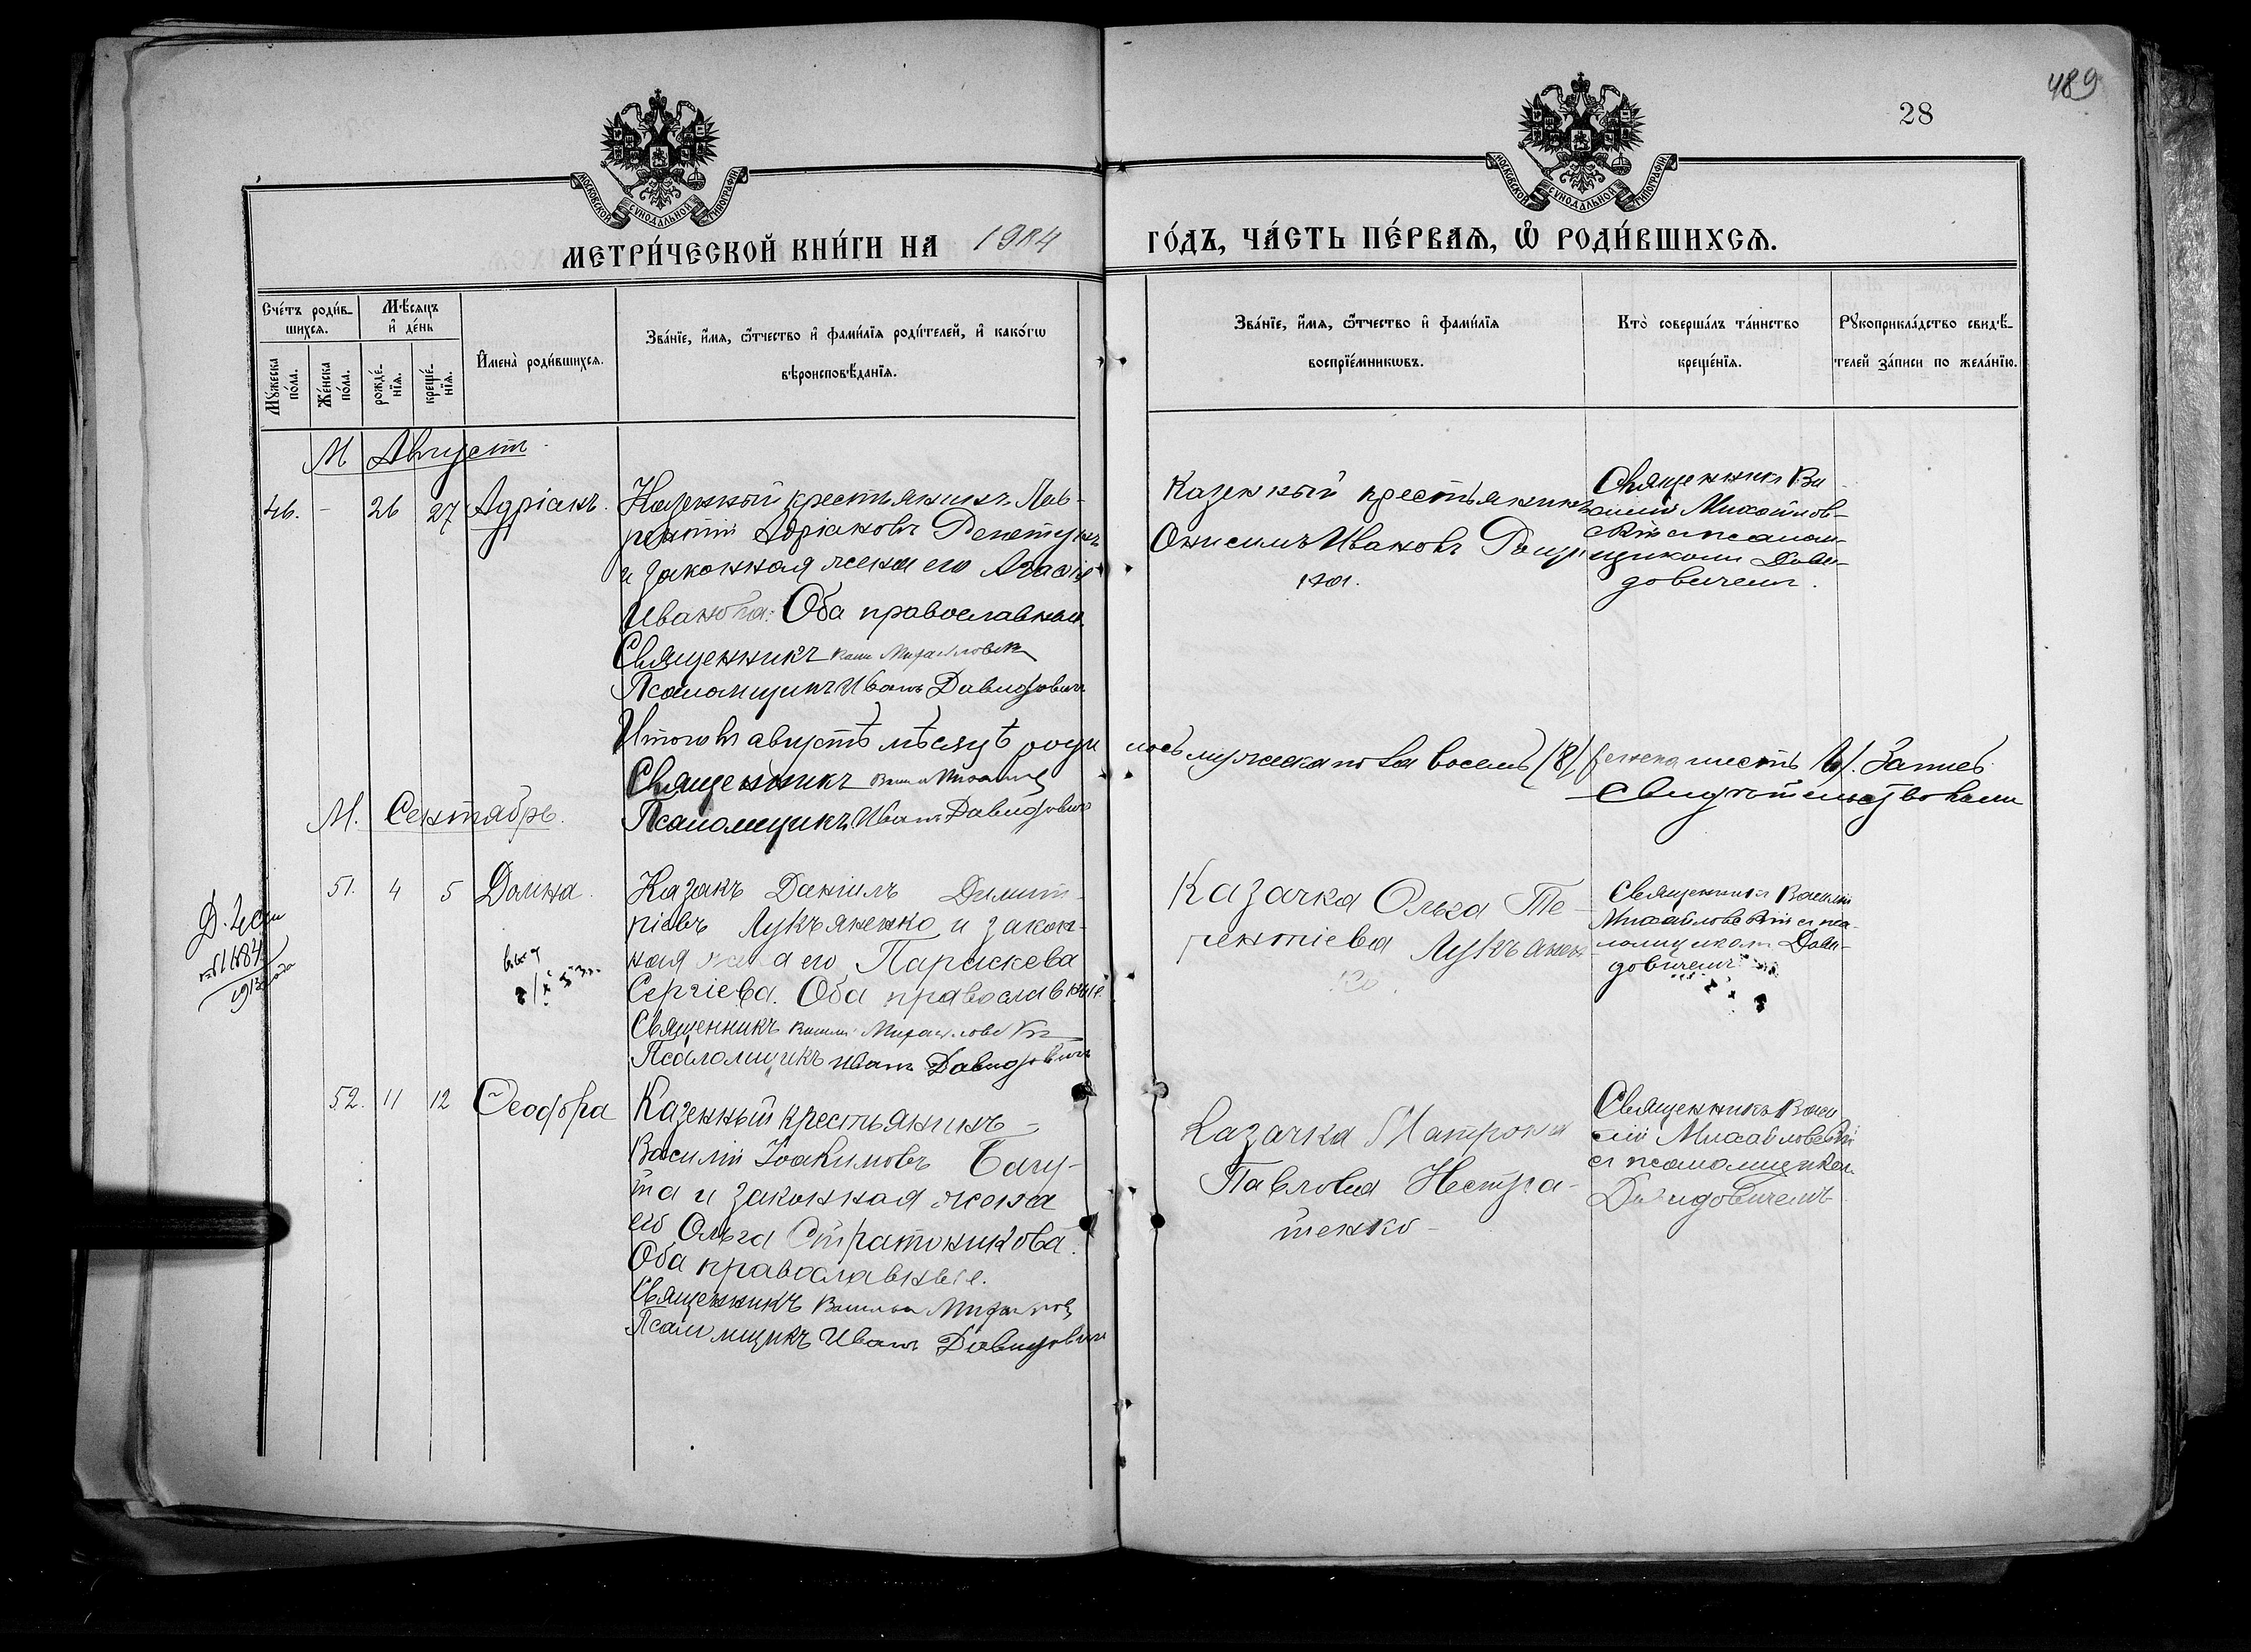 489
28
МОСКОВСКОЙ СѴНОДАЛЬНОЙ ТИПОГРАФІИ
МОСКОВСКОЙ СѴНОДАЛЬНОЙ ТИПОГРАФІИ
МЕТРИ́ЧЕСКОЙ КНИ́ГИ НА 1904
ГО́ДЪ, ЧА́СТЬ ПЕ́РВАѦ, Ѽ РОДИ́ВШИХСѦ.
Сче́тъ роди́в-
шихсѧ.
Мѣ́сѧцъ
и҆ де́нь
Мꙋ́жеска
по́ла.
Же́нска
по́ла.
рожде́-
нїѧ.
креще́-
нїѧ.
И҆мена̀ роди́вшихсѧ.
Зва́нїе, и҆́мѧ, ѻ҆́тчество и҆ фами́лїѧ роди́телей, и҆ како́гѡ
вѣроисповѣ́данїѧ.
Зва́нїе, и҆́мѧ, ѻ҆́тчество и҆ фами́лїѧ
воспрїе́мникѡвъ.
Кто̀ соверша́лъ та́инство
креще́нїѧ.
Рꙋкоприкла́дство свидѣ́-
телей за́писи по жела́нїю.
М Августъ
46. - 26 27 Адріанъ.
Казенный крестьянинъ Лав-
рентій Адріановъ Репетунъ
и законная жена его Агаѳія
Иванова. Оба православные.
Священникъ Михайловскій
Псаломщикъ Иванъ Давидовичъ
Казенный крестьянинъ
Онисимъ Ивановъ
Священникъ Ва-
силій Михайлов-
скій съ псалом-
щикомъ Дави-
довичемъ.
Итого въ августѣ мѣсяцѣ роди лось мужска пола восемь (8), женска шесть Запись
Священникъ
свидѣтельствовали
Псаломщикъ Иванъ Давидовичъ
М. Сентябрь.
51. 4 5 Домна.
Казакъ Даніилъ Димит-
ріевъ Лукъяненко и закон-
ная жена его Параскева
Сергіева. Оба православные.
Священникъ Василій Михайловскій
Псаломщикъ Иванъ Давидовичъ
Казачка Ольга Те-
рентіева Лукъянен-
ко.
Священникъ Василій
Михайловскій съ пса-
ломщикомъ Дави-
довичемъ
52. 11 12 Ѳеодора
Казенный крестьянинъ
Василій Іоакимовъ Багу-
та и законная жена
его Ольга Стратоникова.
Оба православные.
Священникъ Василій Михайловскій
Псаломщикъ Иванъ Давидовичъ
Казачка Матрона
Павлова Нестра-
тенко
Священникъ Васи-
лій Михайловскій
съ псаломщикомъ
Давидовичемъ